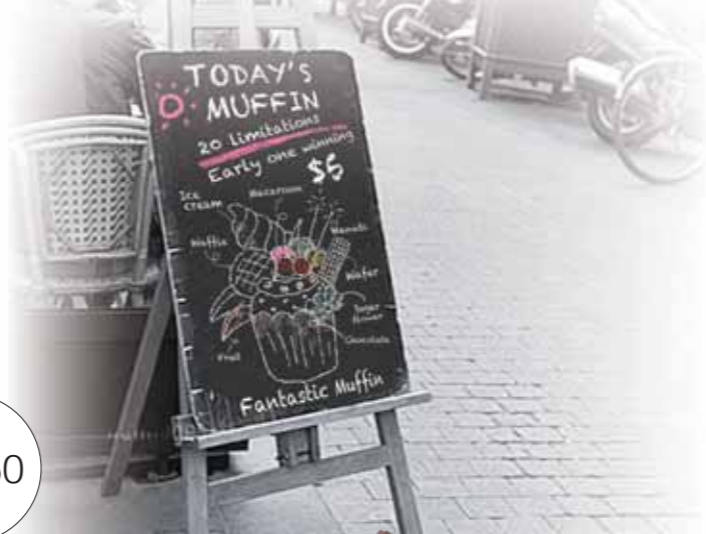 TODAY'S
MUFFIN
20 limitations
Early one winning
$5
Ice
cream
Macaroon
Waffle
Wafer
Sugar
flower
Chocolate
Fruit
Fantastic Muffin